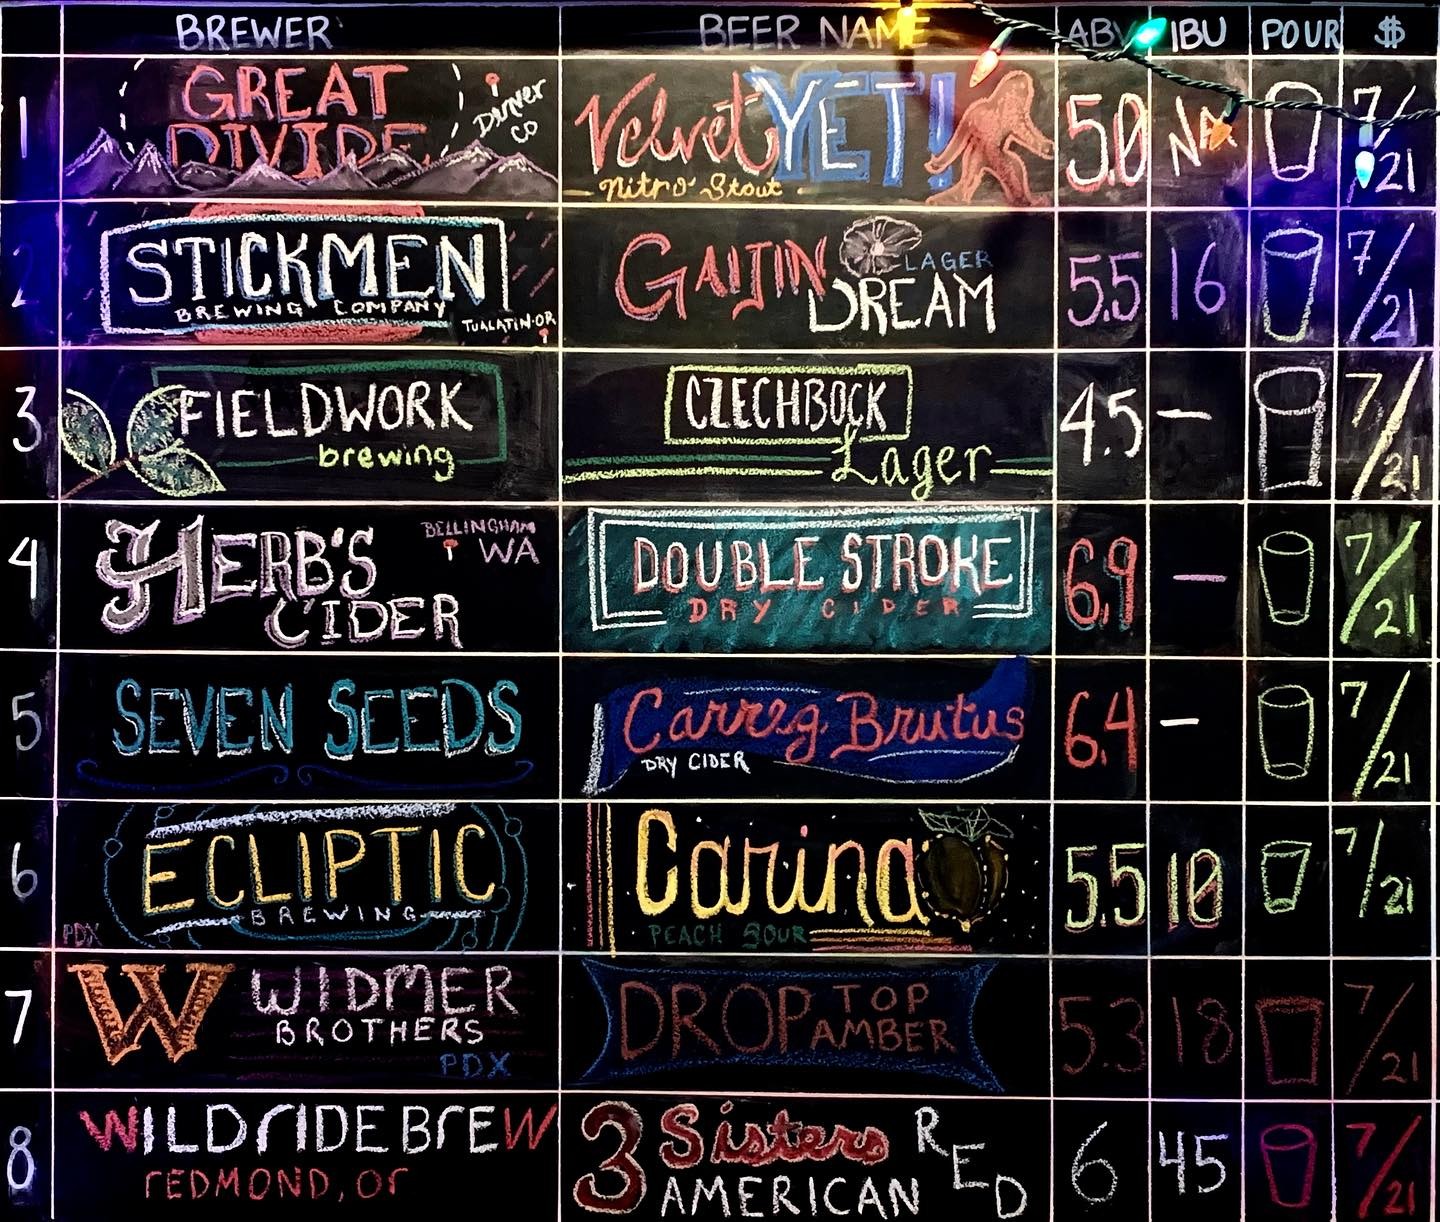 BREWER BEER NAME ABV IBU POUR $
1 GREAT DIVIDE Denver CO Velvet YETI! Nitro Stout 5.0 NA 7/21
2 STICKMEN BREWING COMPANY TUALATIN·OR GAIJIN LAGER DREAM 5.5 16 7/21
3 FIELDWORK brewing CZECHBOCK Lager 4.5 — 7/21
4 HERB'S CIDER BELLINGHAM WA DOUBLE STROKE DRY CIDER 6.9 — 7/21
5 SEVEN SEEDS Carreg Brutus DRY CIDER 6.4 — 7/21
6 ECLIPTIC BREWING PDX Carina PEACH SOUR 5.5 10 7/21
7 W WIDMER BROTHERS PDX DROP TOP AMBER 5.3 18 7/21
8 WILDRIDE BREW REDMOND, Or 3 Sisters AMERICAN RED 6 45 7/21